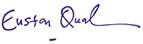 Euston Qual